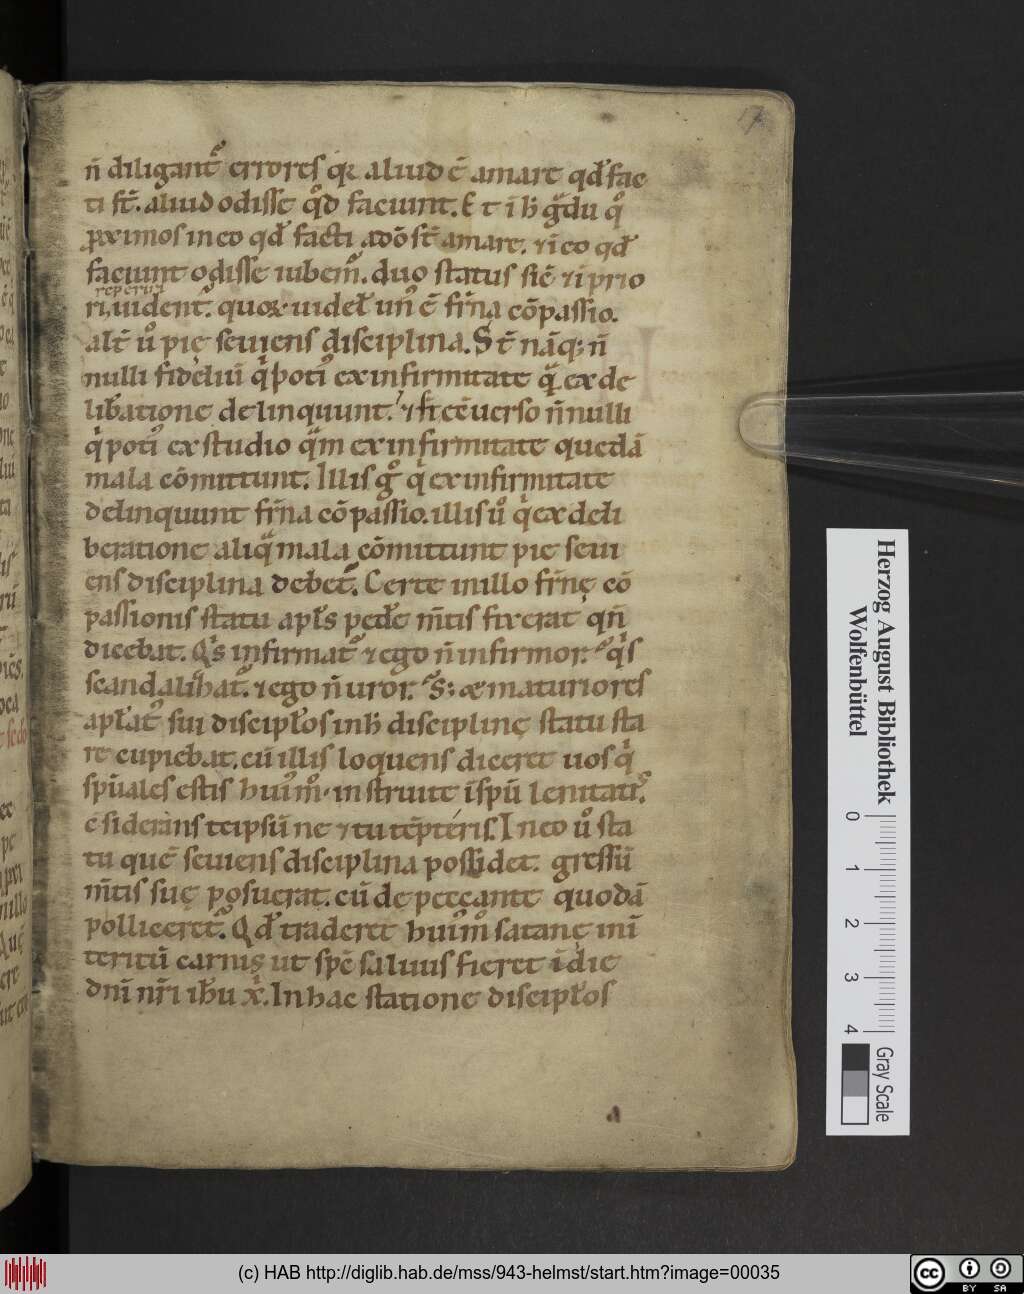 17
n̄ diligant᷒ errores q̇ꝛ aliud ē amare qd̕ fac
ti st̄. aliud odisse qͦd faciunt. Et i h̄ gͣdu qͦ
ꝓximos in eo qd̕ facti a dō st̄ amare. ⁊ i eo qd̕
faciunt odisse iubem᷒. duo status sic̄ ⁊ i prio
reperiri
ri, uident᷒. quoꝝ uidel̕ un᷒ ē fr̄na cōpassio.
alt̄ uͦ pię seuiens disciplina. St̄ nāq; n̄
nulli fideliū qͥ poti᷒ ex infirmitate qͣ ex de
lib̄atione delinquunt. ⁊ st̄ ecōuerso n̄nulli
qͥ poti᷒ ex studio qͣm ex infirmitate quedā
mala cōmittunt. Illis gͦ qͥ ex infirmitate
delinquunt fr̄na cōpassio. illis uͦ qͥ ex deli
beratione aliqͣ mala cōmittunt pie seui
ens disciplina debet᷒. Certe in illo fr̄nę cō
passionis statu apl̕s pedē m̄tis fixerat qn̄
dicebat. Qͥs infirmat᷒ ⁊ ego n̄ infirmor. qͥs
scandalizat᷒. ⁊ ego n̄ uror. S; maturiores
statu sta
re cupiebat. cū illis loquens diceret uos qͥ
sp̄uales estis hui᷒mͦ instruite ī sp̄ū lenitatis.
c̄siderans teipsū ne ⁊ tu tēpteris. In eo uͦ sta
tu quē seuiens disciplina possidet. gressū
m̄tis suę posuerat. cū de peccante quodā
polliceret᷒. Qd̕ traderet hui᷒mͦ satanę in ī
teritū carnis ut sp̄c saluus fieret ī die
dn̄i nr̄i ih̄u x̄. In hac statione discipl̕os
Herzog August Bibliothek
Wolfenbüttel
0 1 2 3 4
Gray Scale
(c) HAB http://diglib.hab.de/mss/943-helmst/start.htm?image=00035
cc BY SA